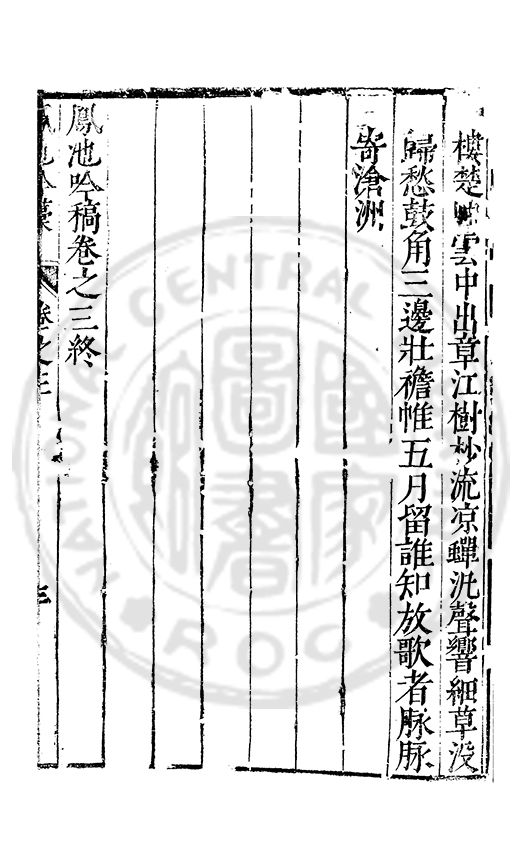 樓楚岫雲中出章江樹杪流凉蟬汎聲響細草没
歸愁鼓角三邊壯襜帷五月留誰知放歌者脉脉
寄滄洲
鳳池吟稿卷之三終
鳳池吟藁 卷之三